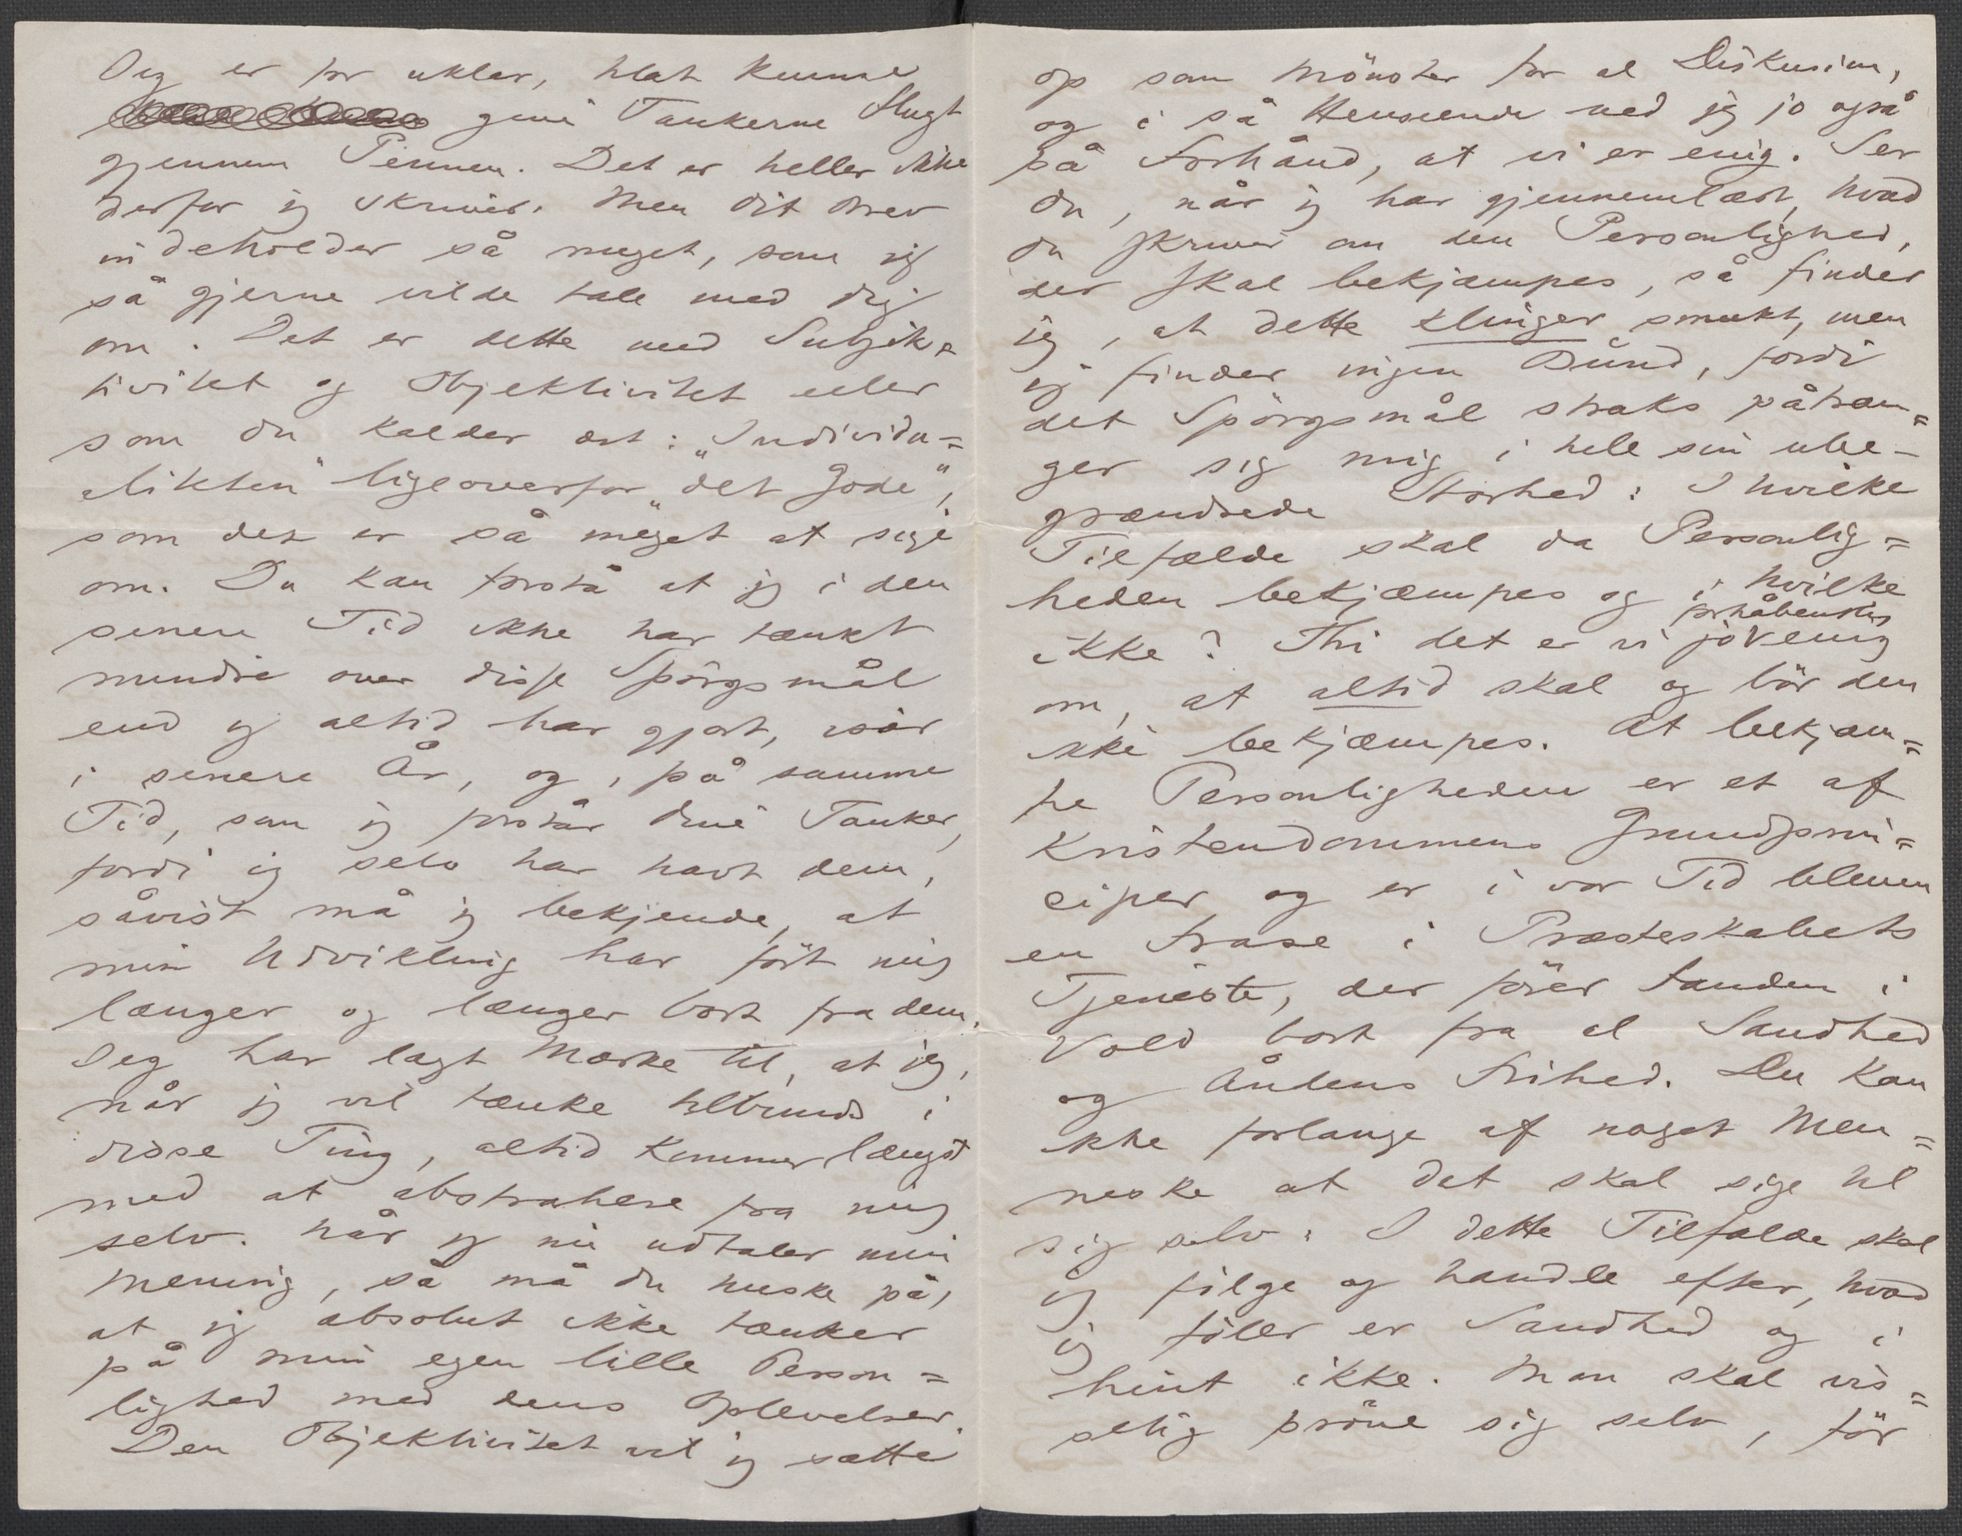 og er for uklar, blot kunne
give Tankerne Flugt
gjennem Pennen. Det er heller ikke
derfor jeg skriver. Men dit Brev
indeholder så meget, som jeg
så gjerne vilde tale med dig
om. Det er dette med Subjek=
tivitet og Objektivitet eller
som du kalder det: „Individu=
aliteten“ ligeoverfor „det Gode“,
som der er så meget at sige
om. Du kan forstå at jeg i den
senere Tid ikke har tænkt
mindre over disse Spörgsmål
end jeg altid har gjort, især
i senere År, og, på samme
Tid, som jeg forstår dine Tanker,
fordi jeg selv har havt dem,
såvist må jeg bekjende, at
min Udvikling har fört mig
længer og længer bort fra dem.
Jeg har lagt Mærke til, at jeg,
når jeg vil tænke tilbunds i
disse Ting, altid kommer længst
med at abstrahere fra mig
selv. Når jeg nu udtaler min
Mening, så må du huske på,
at jeg absolut ikke tænker
på min egen lille Person=
lighed med dens Oplevelser.
Den Objektivitet vil jeg sætte
op som Mönster for al Diskusion,
og i så Henseende ved jeg jo også
på Forhånd, at vi er enig. Ser
du, når jeg har gjennemlæst, hvad
du skriver om den Personlighed,
der skal bekjæmpes, så finder
jeg, at dette klinger smukt, men
jeg finder ingen Bund, fordi
det Spörgsmål straks påtræn=
ger sig mig i hele sin ube-
grændsede Storhed: I hvilke
Tilfælde skal da Personlig=
heden bekjæmpes og i hvilke
ikke? Thi det er vi jo forhåbentlig enig
om, at altid skal og bör den
ikke bekjæmpes. At bekjæm=
pe Personligheden er et af
Kristendommens Grundprin=
ciper og er i vor Tid bleven
en Frase i Præsteskabets
Tjeneste, der förer Landen i
Vold bort fra al Sandhed
og Åndens Frihed. Du kan
ikke forlange af noget Men=
neske at det skal sige til
sig selv: I dette Tilfælde skal
jeg fölge og handle efter, hvad
jeg föler er Sandhed og i
hint ikke. Man skal vis=
selig pröve sig selv, för